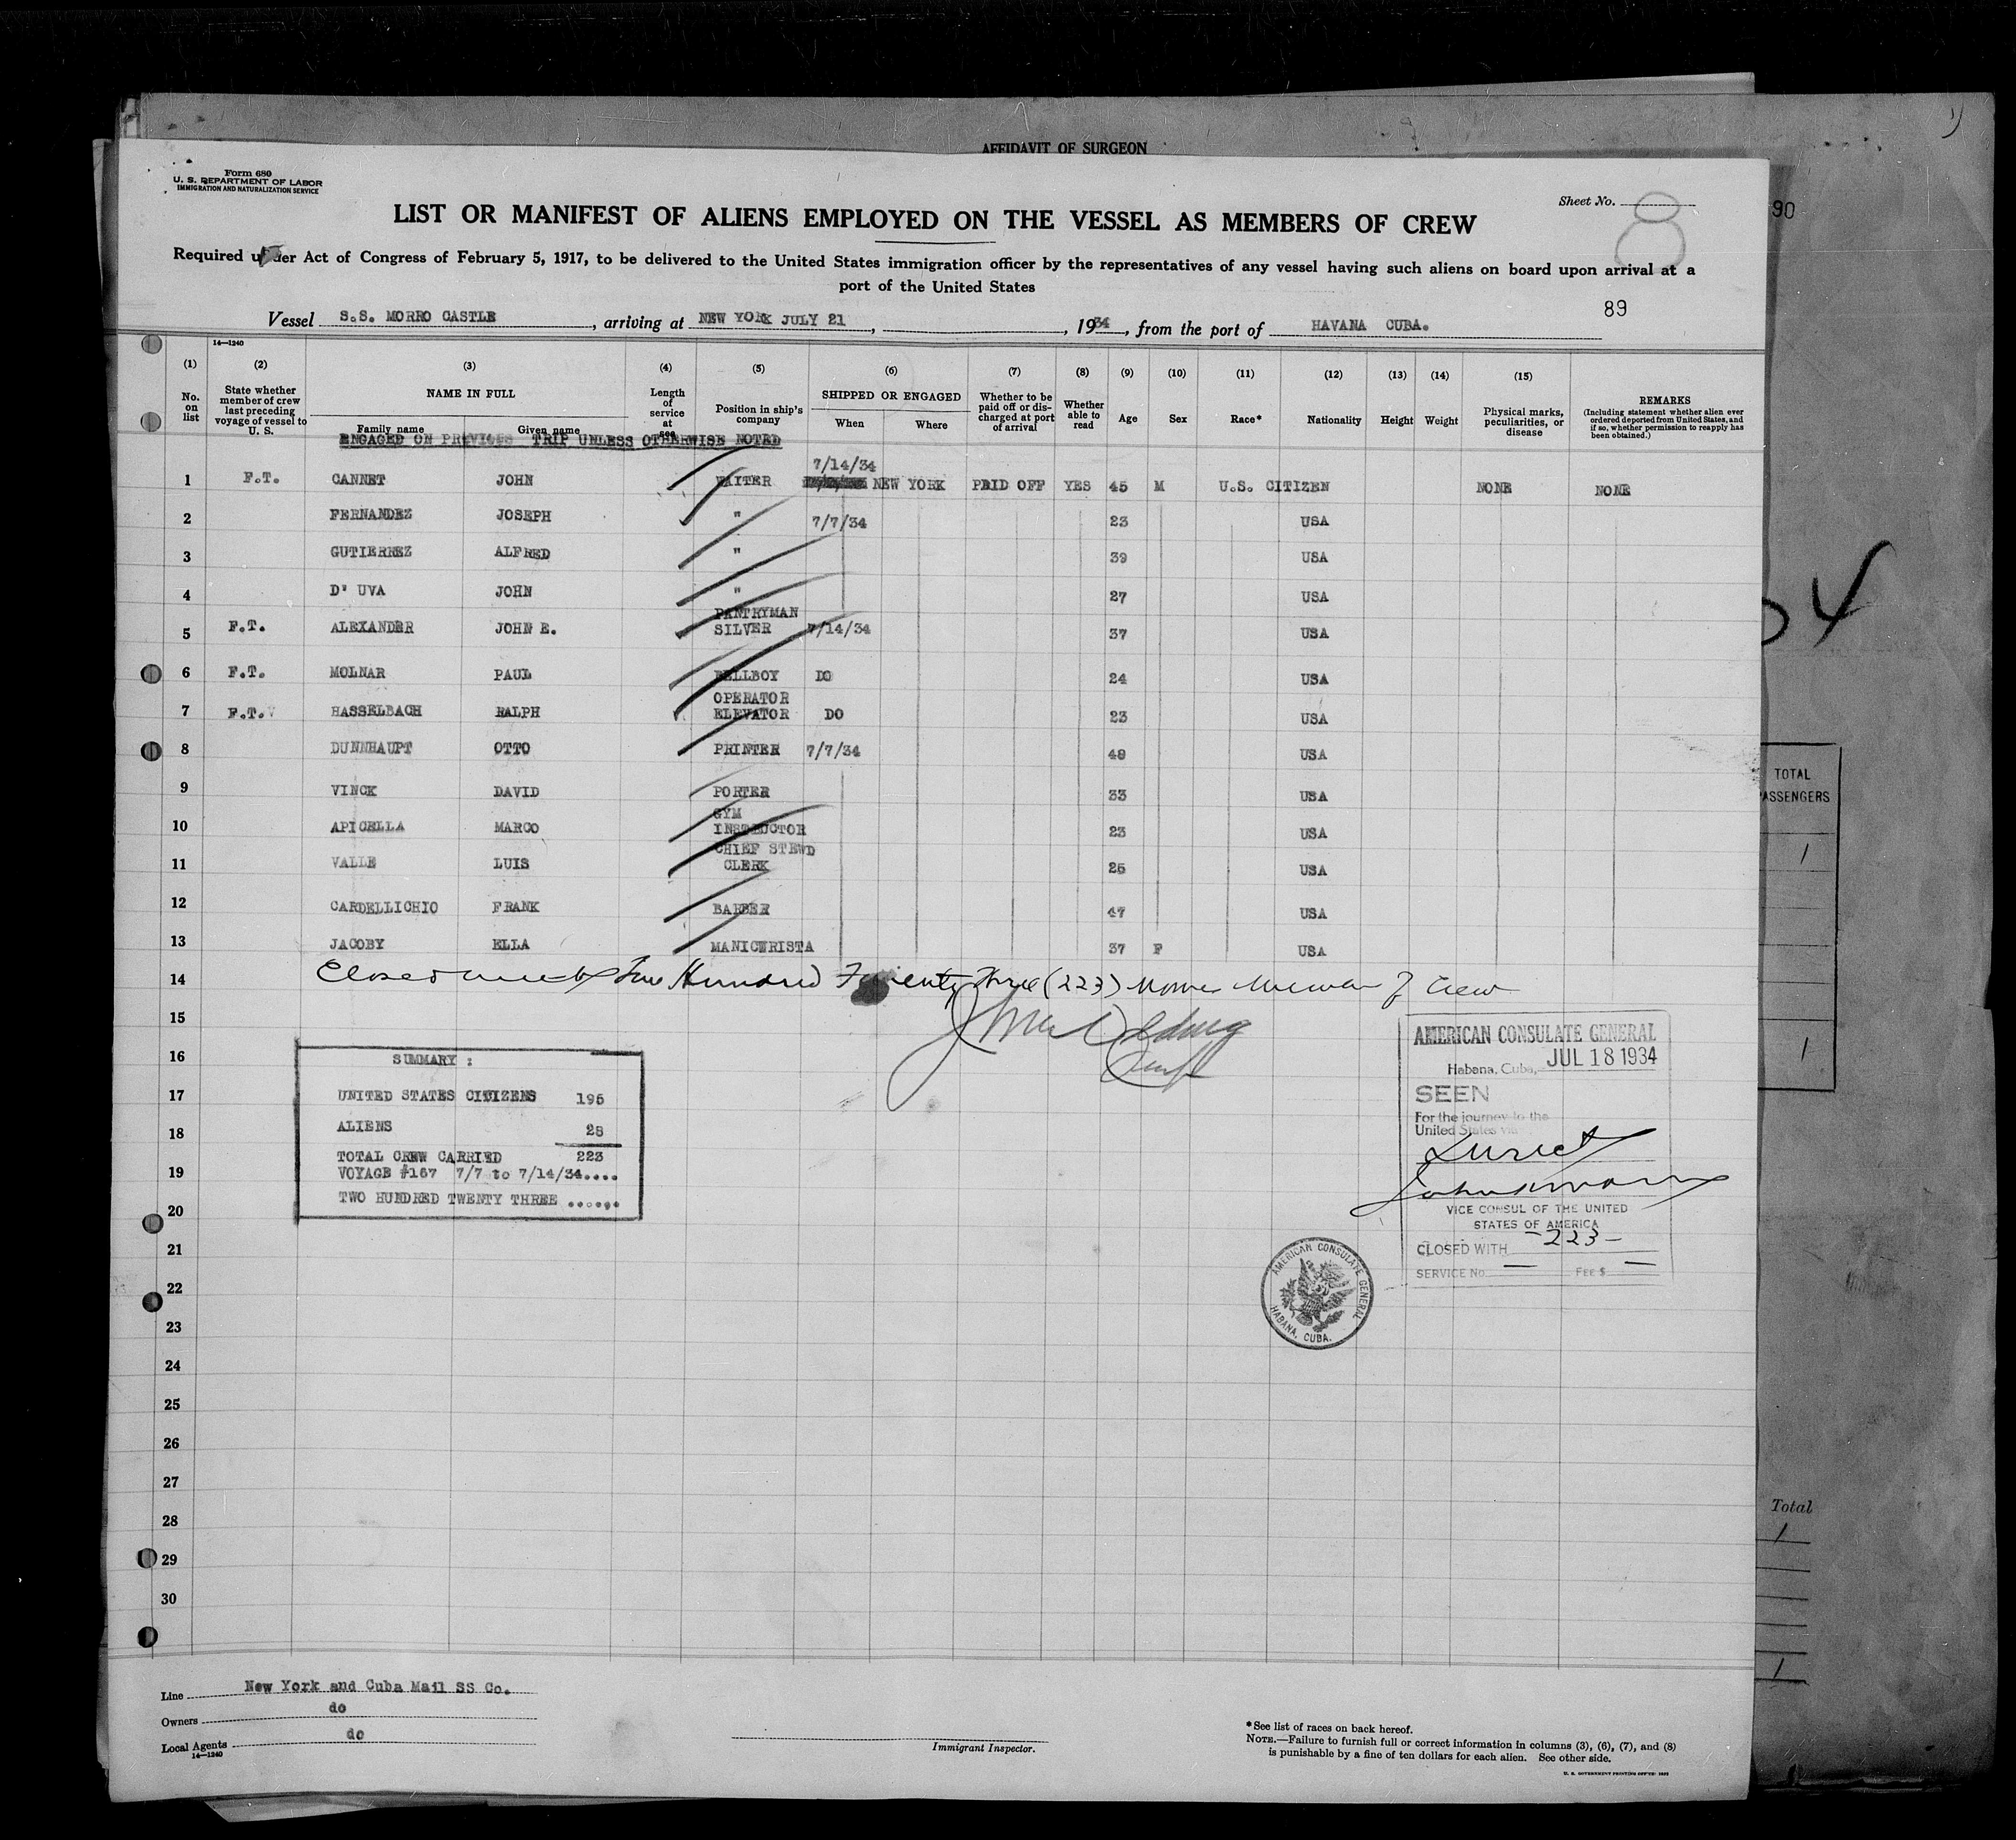 AFFIDAVIT OF SURGEON
Form 680
U. S. DEPARTMENT OF LABOR
IMMIGRATION AND NATURALIZATION SERVICE
Sheet No. 8
90
LIST OR MANIFEST OF ALIENS EMPLOYED ON THE VESSEL AS MEMBERS OF CREW
Required under Act of Congress of February 5, 1917, to be delivered to the United States immigration officer by the representatives of any vessel having such aliens on board upon arrival at a
port of the United States
89
Vessel S.S. MORRO CASTLE, arriving at NEW YORK JULY 21, , 1934, from the port of HAVANA CUBA.
14—1240
(1) (2) (3) (4) (5) (6) (7) (8) (9) (10) (11) (12) (13) (14) (15)
No. on list
State whether member of crew last preceding voyage of vessel to U. S.
NAME IN FULL
Family name Given name
Length of service at sea
Position in ship's company
SHIPPED OR ENGAGED
When Where
Whether to be paid off or discharged at port of arrival
Whether able to read
Age
Sex
Race*
Nationality
Height
Weight
Physical marks, peculiarities, or disease
REMARKS
(Including statement whether alien ever ordered deported from United States, and if so, whether permission to reapply has been obtained.)
ENGAGED ON PREVIOUS TRIP UNLESS OTHERWISE NOTED
7/14/34
1 F.T. CANNET JOHN WAITER NEW YORK PAID OFF YES 45 M U.S. CITIZEN NONE NONE
2 FERNANDEZ JOSEPH " 7/7/34 23 USA
3 GUTIERREZ ALFRED " 39 USA
4 D' UVA JOHN " 27 USA
PANTRYMAN
5 F.T. ALEXANDER JOHN E. SILVER 7/14/34 37 USA
6 F.T. MOLNAR PAUL BELLBOY DO 24 USA
OPERATOR
7 F.T. HASSELBACH RALPH ELEVATOR DO 23 USA
8 DUNNHAUPT OTTO PRINTER 7/7/34 49 USA
9 VINCK DAVID PORTER 33 USA
GYM
10 APICELLA MARCO INSTRUCTOR 23 USA
CHIEF STEWD
11 VALLE LUIS CLERK 25 USA
12 CARDELLICHIO FRANK BARBER 47 USA
13 JACOBY ELLA MANICWRISTA 37 F USA
14 Closed with Two Hundred Twenty Three (223) Crew
15
16
17
18
19
20
21
22
23
24
25
26
27
28
29
30
SUMMARY :
UNITED STATES CITIZENS 195
ALIENS 28
TOTAL CREW CARRIED 223
VOYAGE #167 7/7 to 7/14/34....
TWO HUNDRED TWENTY THREE ......
AMERICAN CONSULATE GENERAL
Habana, Cuba, JUL 18 1934
SEEN
For the journey to the
United States via
VICE CONSUL OF THE UNITED
STATES OF AMERICA
CLOSED WITH -223-
SERVICE No. — FEE $ —
AMERICAN CONSULATE GENERAL
HABANA, CUBA.
Line New York and Cuba Mail SS Co.
Owners do
Local Agents do
14—1240
Immigrant Inspector.
*See list of races on back hereof.
NOTE.—Failure to furnish full or correct information in columns (3), (6), (7), and (8)
is punishable by a fine of ten dollars for each alien. See other side.
U. S. GOVERNMENT PRINTING OFFICE
TOTAL
PASSENGERS
1
1
Total
1
1